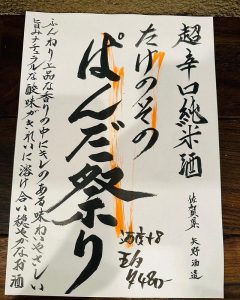 超辛口純米酒
佐賀県 矢野酒造
たけのその
ぱんだ祭り
酒度+8
五勺
¥480-
ふんわり上品な香りの中にキレのある味わいやさしい
旨みナチュラルな酸味がきれいに溶け合い穏やかなお酒